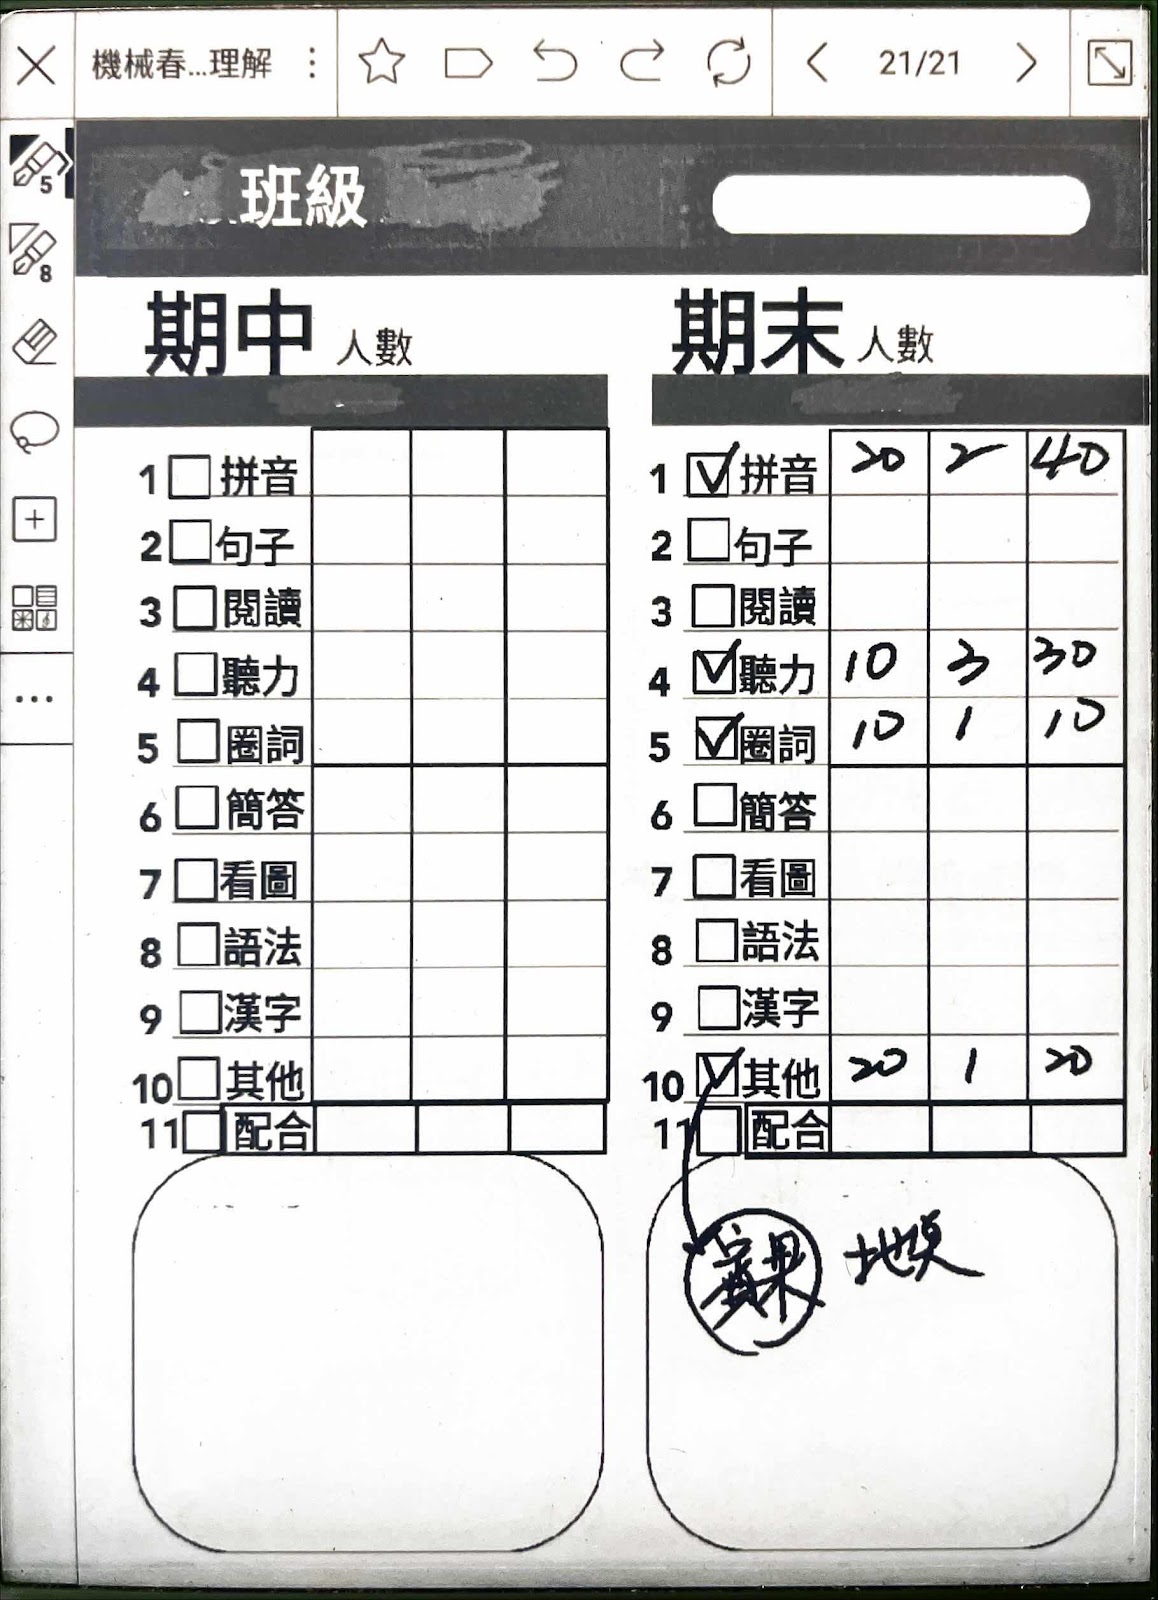 機械春...理解
21/21
5
8
班級
期中 人數
1 拼音
2 句子
3 閱讀
4 聽力
5 圈詞
6 簡答
7 看圖
8 語法
9 漢字
10 其他
11 配合
期末 人數
1 拼音 20 2 40
2 句子
3 閱讀
4 聽力 10 3 30
5 圈詞 10 1 10
6 簡答
7 看圖
8 語法
9 漢字
10 其他 20 1 20
11 配合